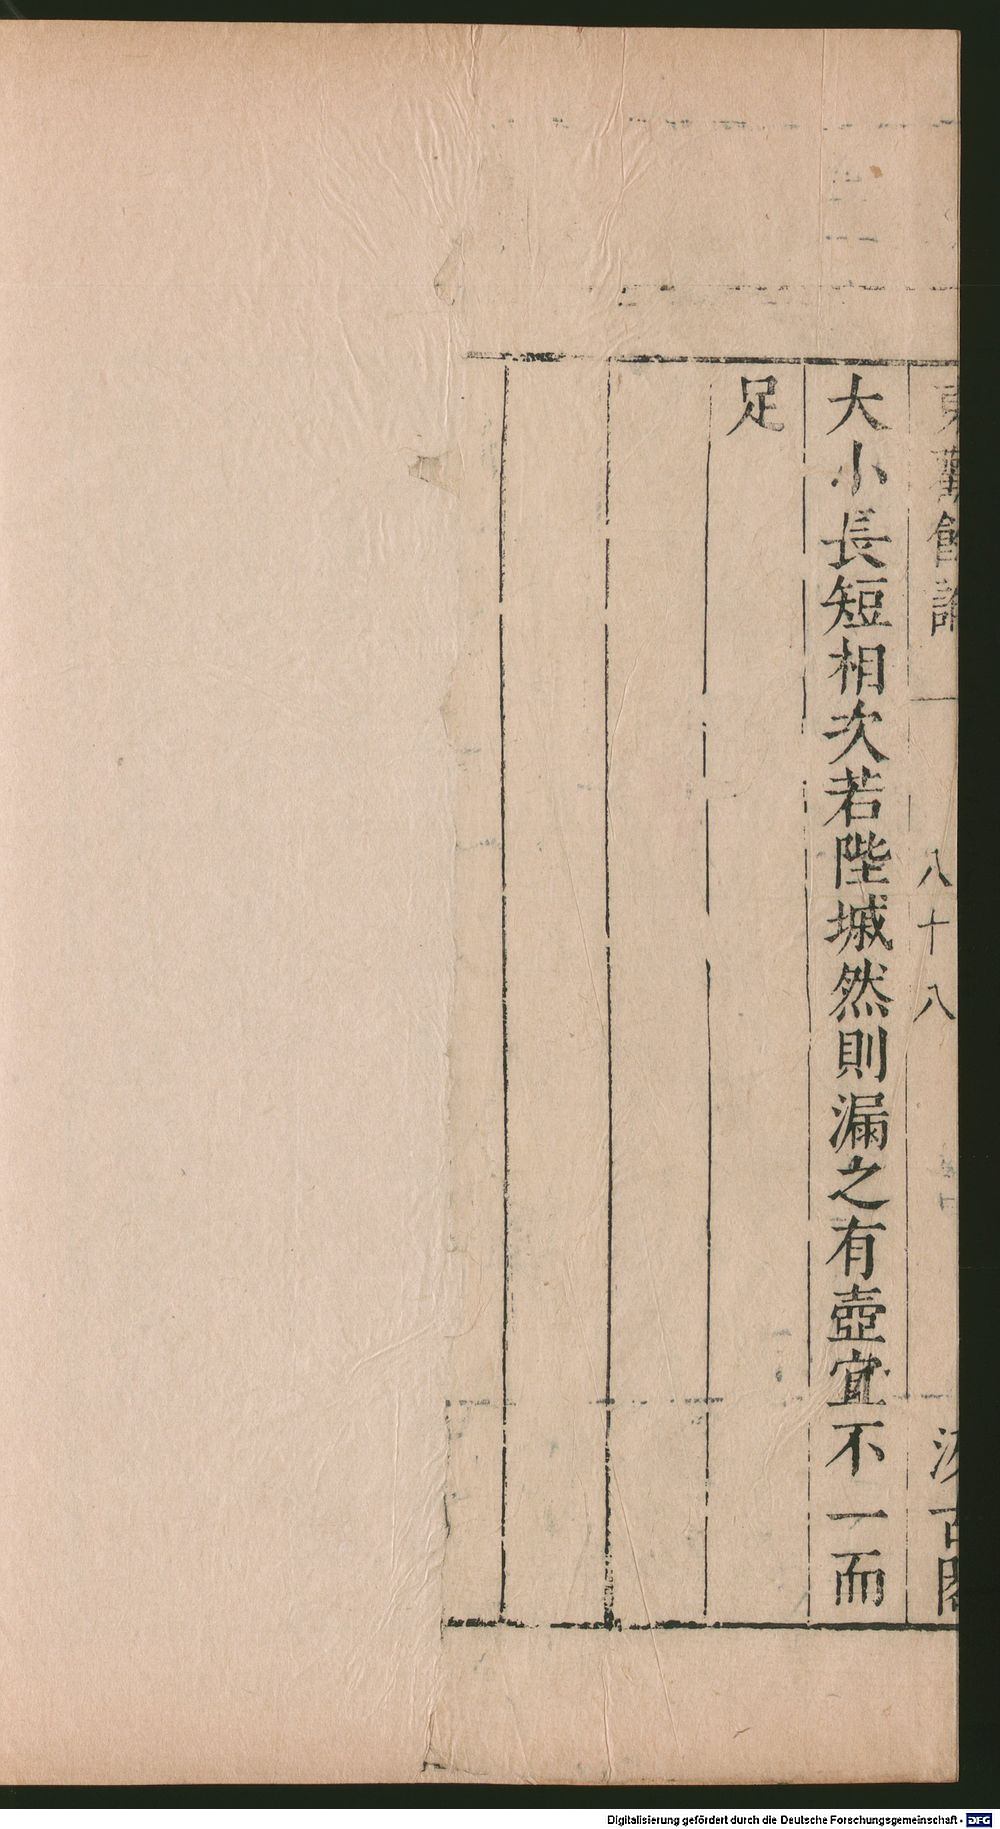 東觀餘論
八十八
汲古閣
大小長短相次若陛墄然則漏之有壺宜不一而
足
Digitalisierung gefördert durch die Deutsche Forschungsgemeinschaft - DFG